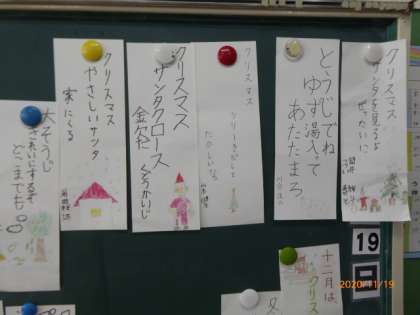 クリスマス
サンタを見るよ
ぜったいに
とうじでね
ゆず湯入って
あたたまろ
クリスマス
ツリーをかざって
たのしいな
クリスマス
サンタクロース
クリスマス
やさしいサンタ
家にくる
大そうじ
きれいにするぞ
どこまでも
十二月は
クリス
19
日
2020/11/19